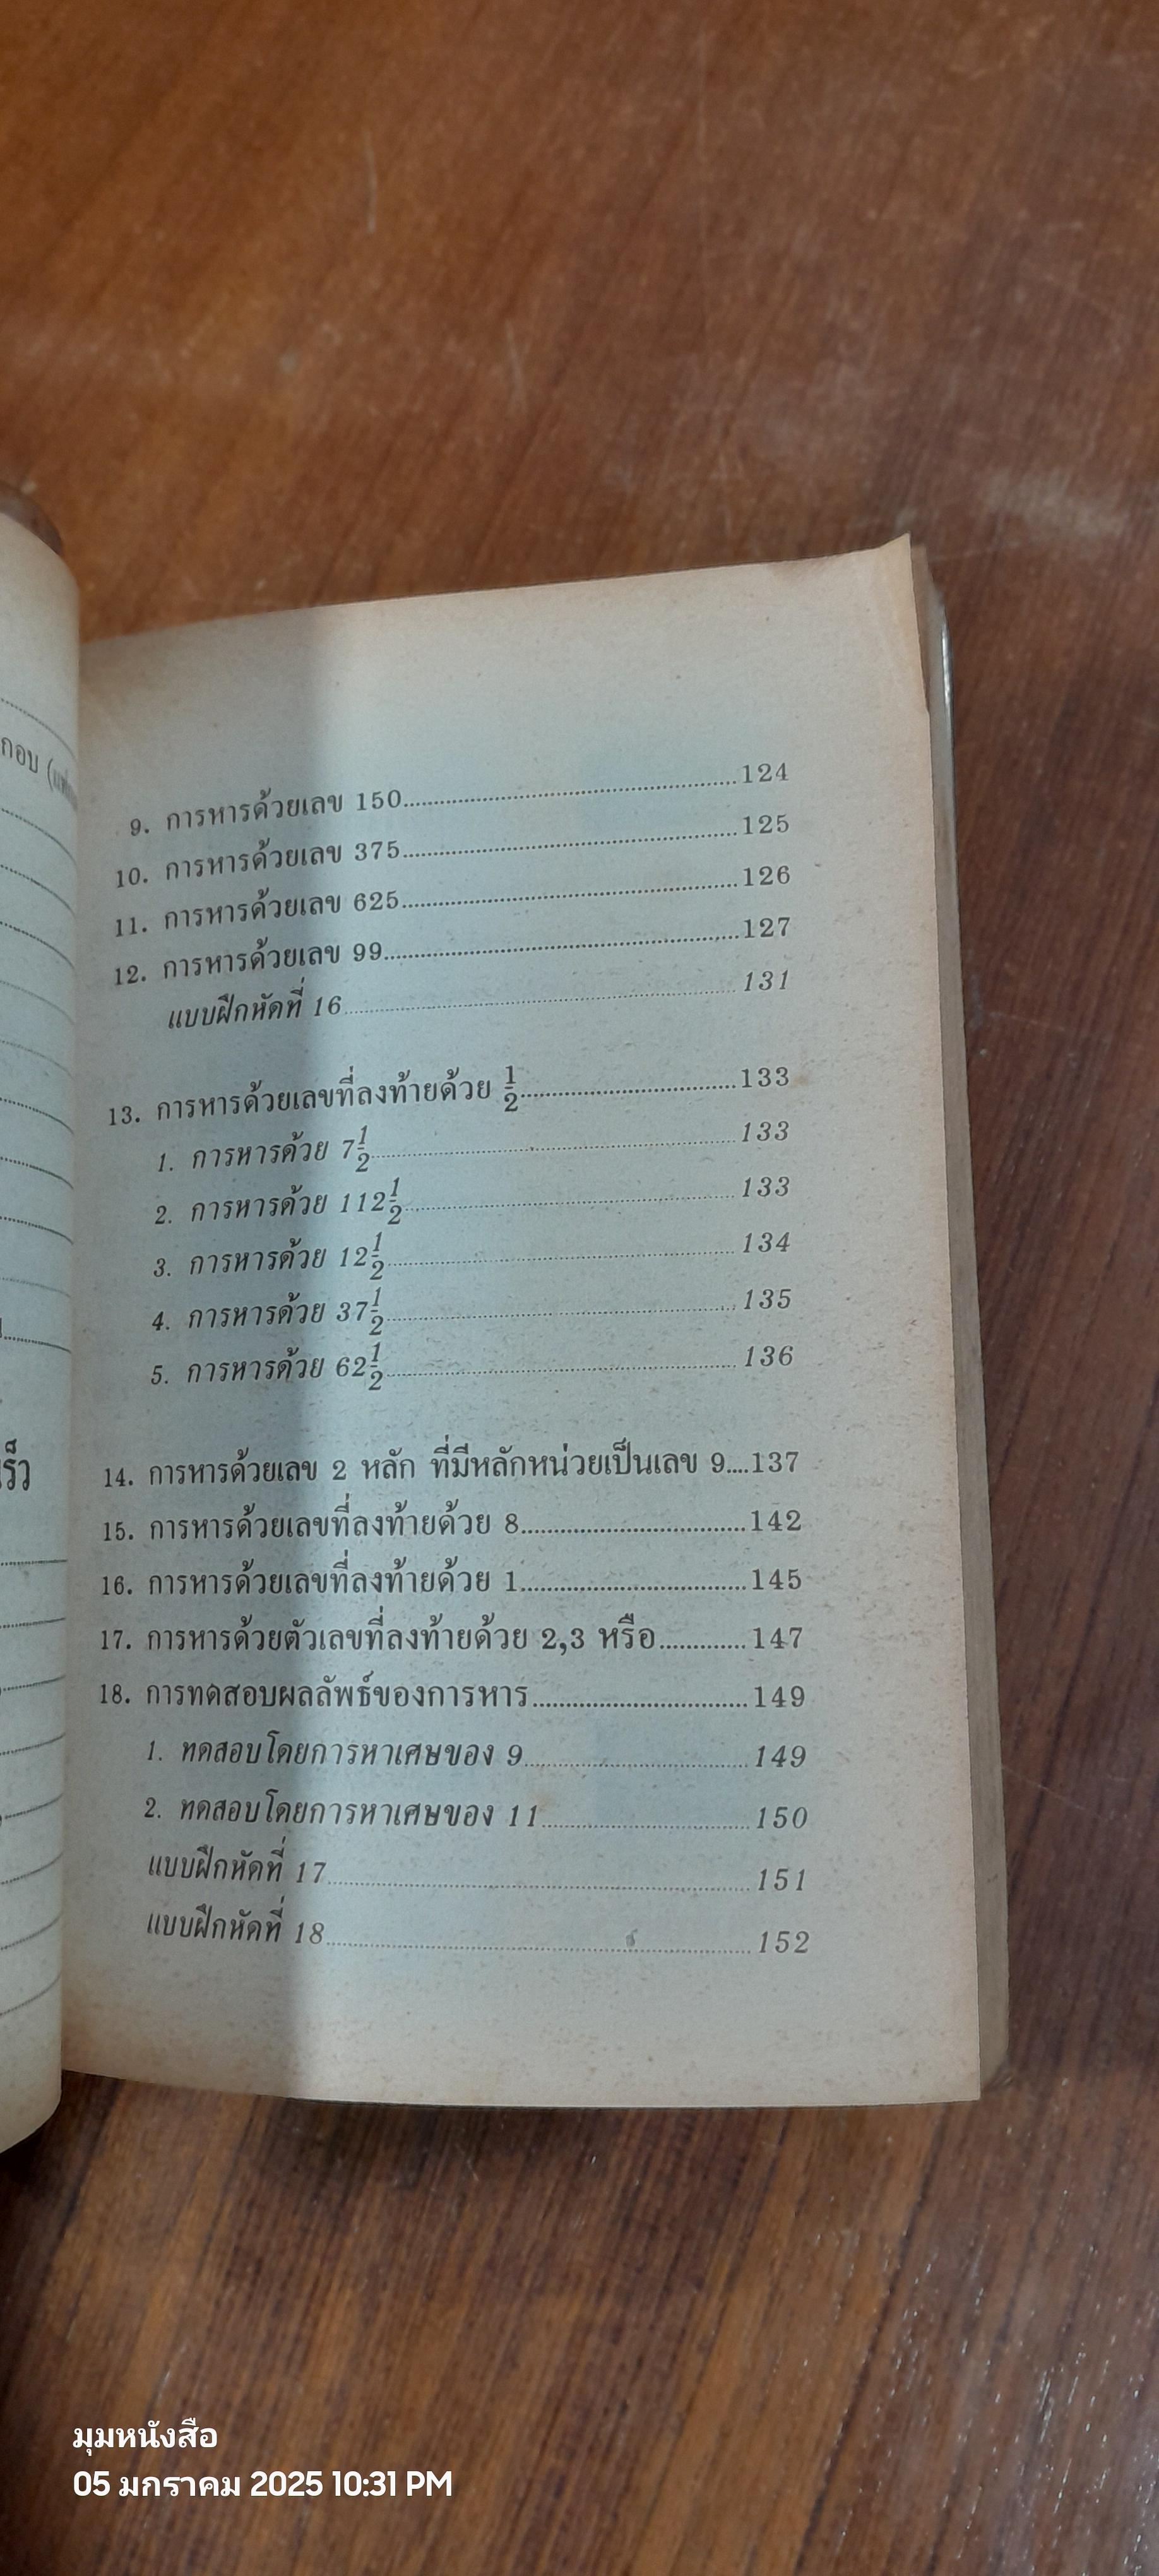 กอบ (
เร็ว
9. การหารด้วยเลข 150 124
10. การหารด้วยเลข 375 125
11. การหารด้วยเลข 625 126
12. การหารด้วยเลข 99 127
แบบฝึกหัดที่ 16 131
13. การหารด้วยเลขที่ลงท้ายด้วย 1/2 133
1. การหารด้วย 7 1/2 133
2. การหารด้วย 112 1/2 133
3. การหารด้วย 12 1/2 134
4. การหารด้วย 37 1/2 135
5. การหารด้วย 62 1/2 136
14. การหารด้วยเลข 2 หลัก ที่มีหลักหน่วยเป็นเลข 9....137
15. การหารด้วยเลขที่ลงท้ายด้วย 8 142
16. การหารด้วยเลขที่ลงท้ายด้วย 1 145
17. การหารด้วยตัวเลขที่ลงท้ายด้วย 2,3 หรือ 147
18. การทดสอบผลลัพธ์ของการหาร 149
1. ทดสอบโดยการหาเศษของ 9 149
2. ทดสอบโดยการหาเศษของ 11 150
แบบฝึกหัดที่ 17 151
แบบฝึกหัดที่ 18 152
มุมหนังสือ
05 มกราคม 2025 10:31 PM